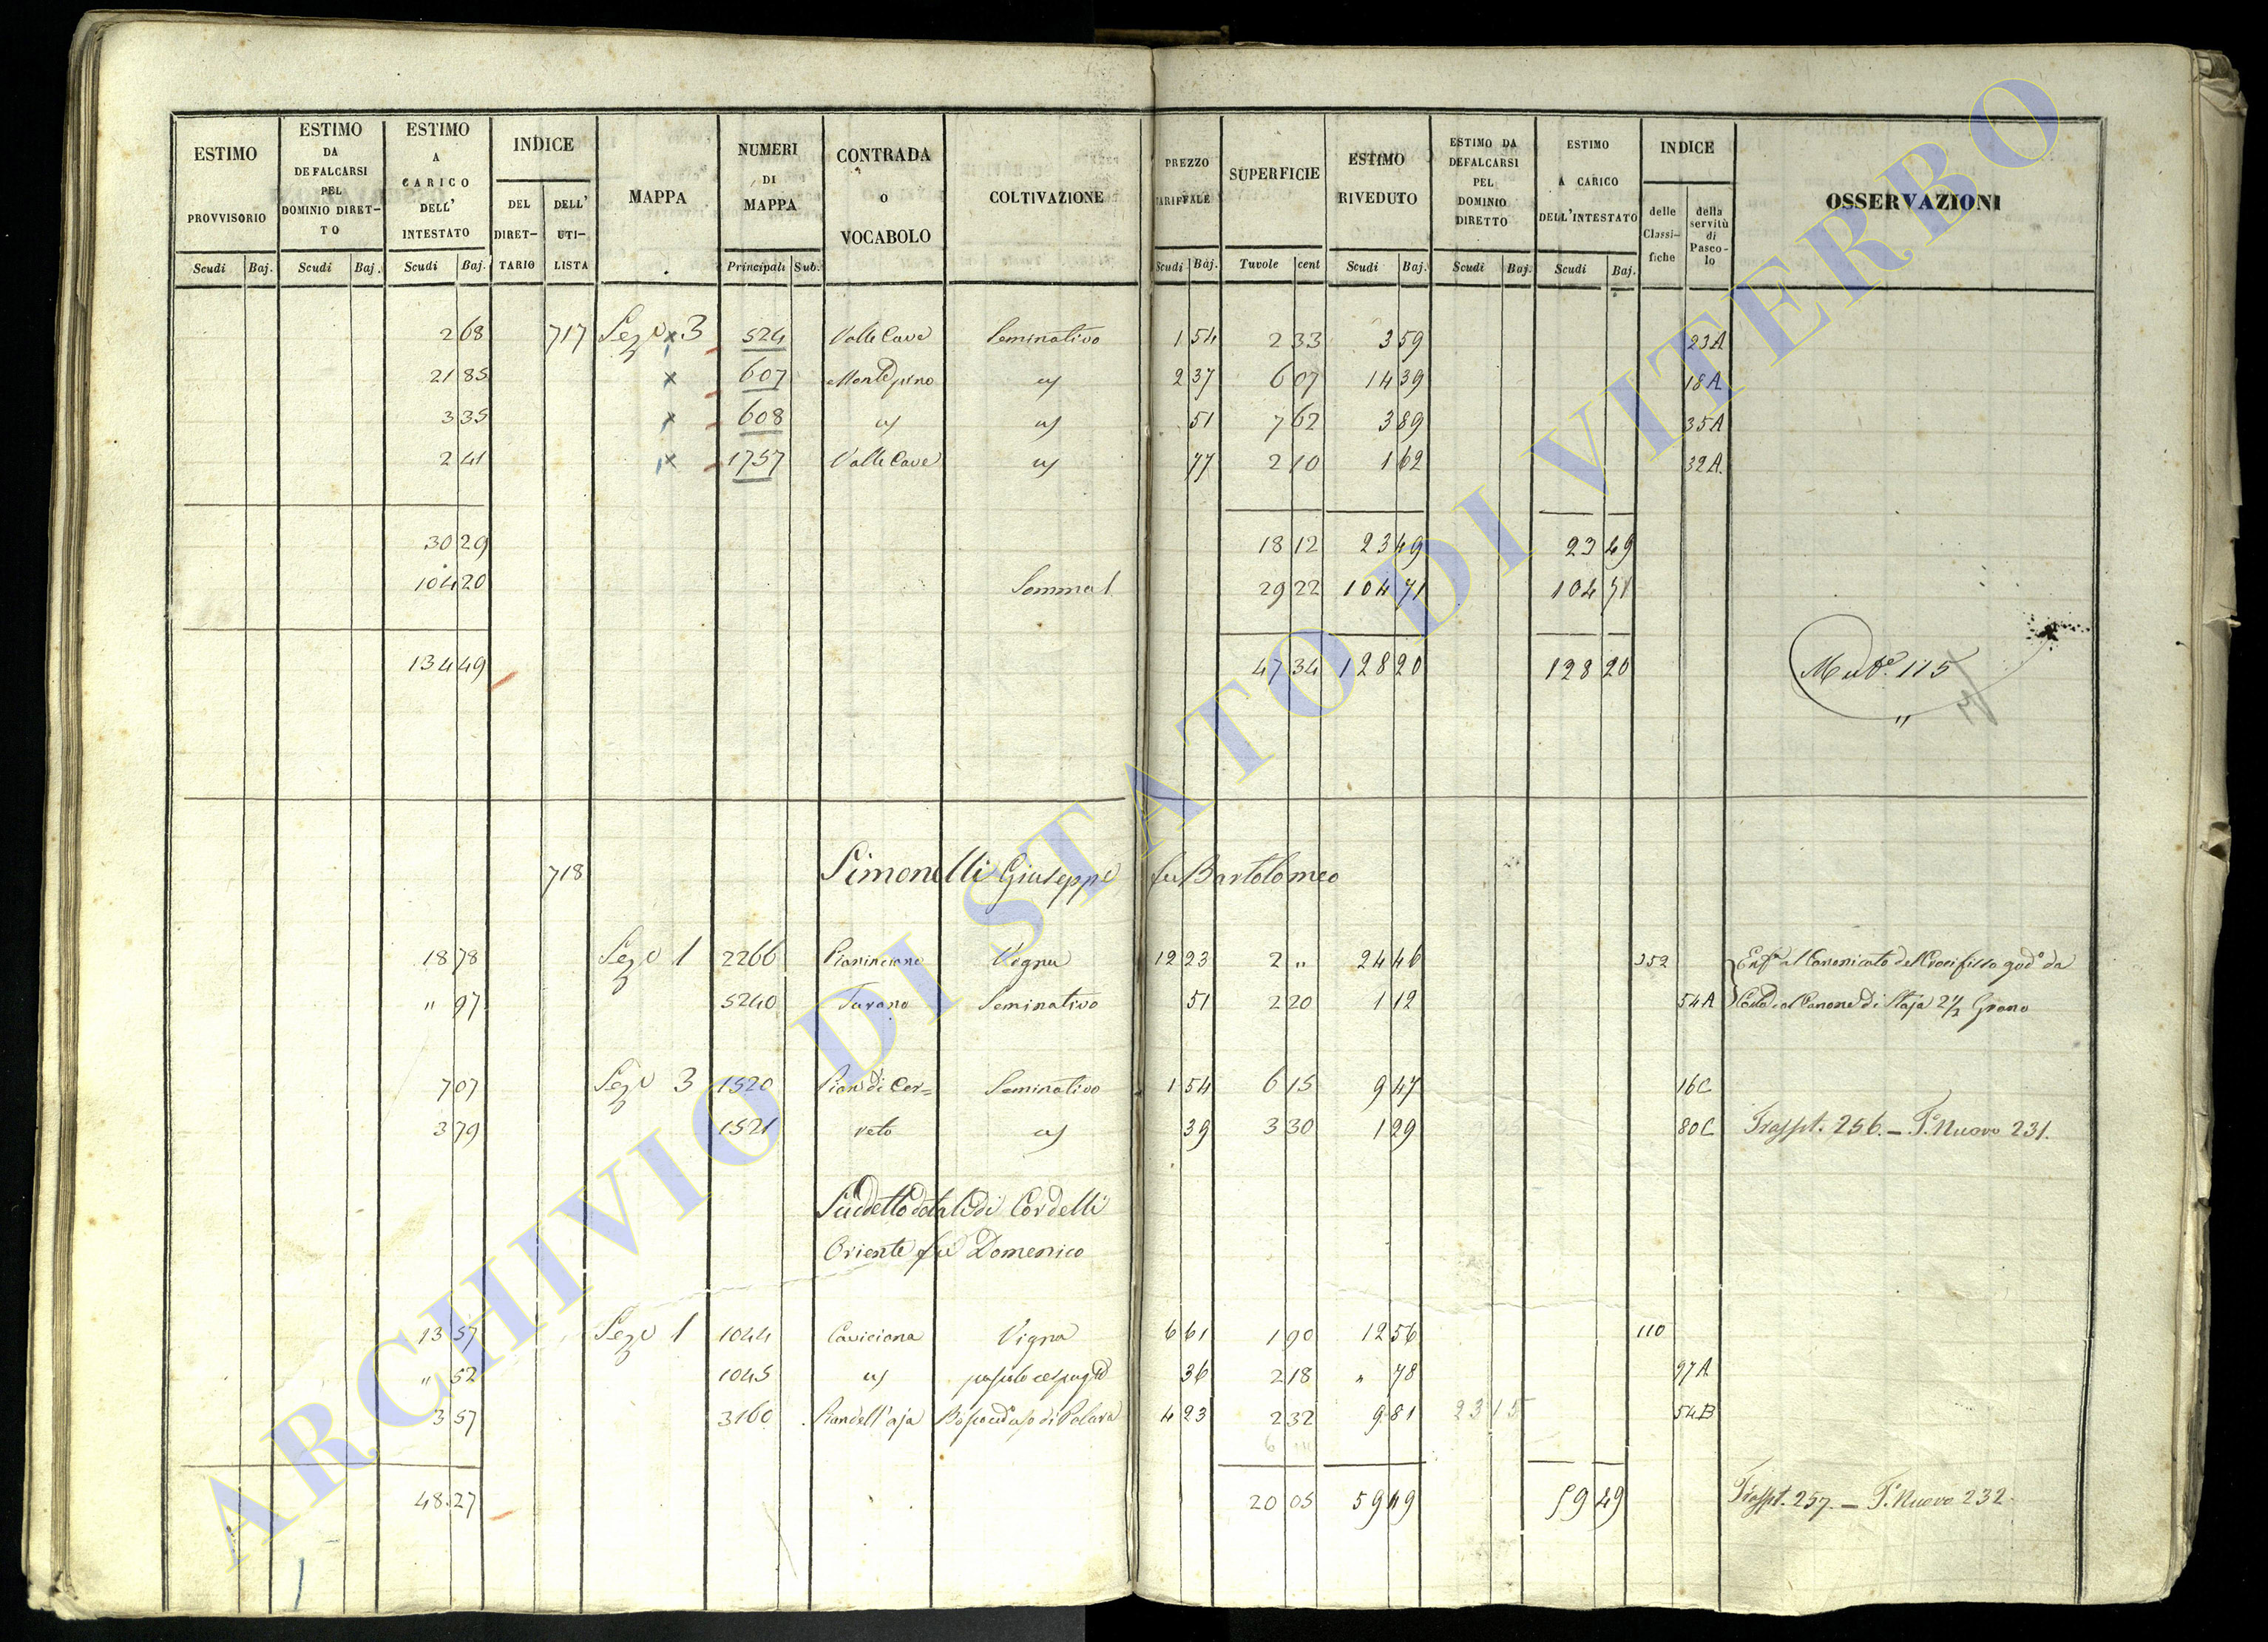 ESTIMO PROVVISORIO Scudi Baj.
ESTIMO DA DEFALCARSI PEL DOMINIO DIRET-TO Scudi Baj.
ESTIMO A CARICO DELL' INTESTATO Scudi Baj.
INDICE DEL DIRET-TARIO DELL' UTI-LISTA
MAPPA
NUMERI DI MAPPA Principali Sub.
CONTRADA O VOCABOLO
COLTIVAZIONE
PREZZO TARIFFALE Scudi Baj.
SUPERFICIE Tavole cent
ESTIMO RIVEDUTO Scudi Baj.
ESTIMO DA DEFALCARSI PEL DOMINIO DIRETTO Scudi Baj.
ESTIMO A CARICO DELL'INTESTATO Scudi Baj.
INDICE delle Classi-fiche della servitù di Pasco-lo
OSSERVAZIONI
2 68 717 Sez e 3 524 Valle Cave Seminativo 1 54 2 33 3 59 23A
21 85 607 Montepino 2 37 6 07 14 39 18A
3 35 608 51 7 62 3 89 35A
2 41 1757 Valle Cave 77 2 10 1 62 32A
30 29 18 12 23 49 23 49
104 20 Somma l 29 22 104 71 104 71
134 49 47 34 128 20 128 20 115
718 Simonelli Giuseppe fu Bartolomeo
18 78 Sez e 1 2266 Vigna 12 23 2 " 24 46 352 al Canonicato del Crocifisso god° da
" 97 5240 Turano Seminativo 51 2 20 1 12 54A Canone di Staja 2 1/2 Grano
7 07 Sez e 3 1520 Pian di Cer= Seminativo 1 54 6 15 9 47 16C
3 79 1521 reto 39 3 30 1 29 80C Traspt. 256. — T. Nuovo 231.
Suddetto dotale di Cordelli
Oriente fu Domenico
13 57 Sez e 1 1044 Caviciana Vigna 6 61 1 90 12 56 110
" 52 1045 36 2 18 " 78 97A
3 57 3160 Pian dell'aja 4 23 2 32 9 81 23 15 54B
48 27 20 05 59 49 59 49 Traspt. 257. — T. Nuovo 232.
ARCHIVIO DI STATO DI VITERBO